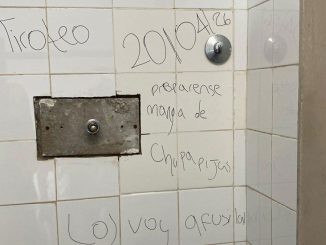 Tiroteo
20/04/26
preparense
manga de
Chupapijas
Los voy a fusilar